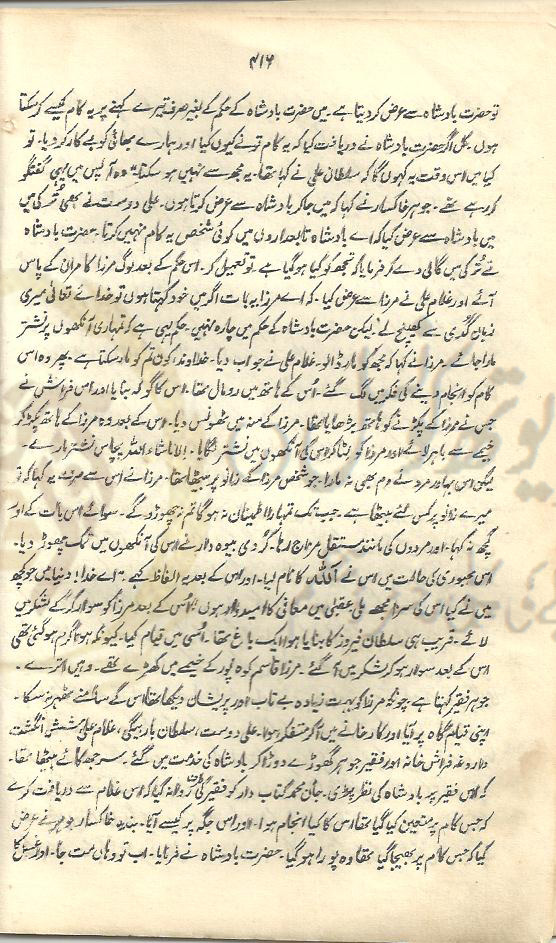 ۴۱۶
تو حضرت بادشاہ سے عرض کر دیتا ہے۔ میں حضرت بادشاہ کے حکم کے بغیر صرف تیرے کہنے پر یہ کام کیسے کر سکتا
ہوں۔ کل اگر حضرت بادشاہ نے دریافت کیا کہ یہ کام تو نے کیوں کیا اور ہمارے بھائی کو بے کار کر دیا۔ تو
کیا میں اس وقت یہ کہوں گا کہ سلطان علی نے کہا تھا۔ یہ مجھ سے نہیں ہو سکتا"۔ وہ آپس میں یہی گفتگو
کر رہے تھے۔ جوہر خاکسار نے کہا کہ میں جا کر بادشاہ سے عرض کرتا ہوں۔ علی دوست نے بھی ترکی میں
میں بادشاہ سے عرض کیا کہ اے بادشاہ تابعداروں میں کوئی شخص یہ کام نہیں کرتا۔ حضرت بادشاہ
نے ترکی میں گالی دے کر فرمایا کہ تجھ کو کیا ہو گیا ہے تو تعمیل کر۔ اس حکم کے بعد لوگ مرزا کامران کے پاس
آئے اور غلام علی نے مرزا سے عرض کیا۔ کہ اے مرزا یہ بات اگر میں خود کہتا ہوں تو خدائے تعالیٰ میری
زبان گدی سے کھینچ لے لیکن حضرت بادشاہ کے حکم میں چارہ نہیں۔ حکم یہی ہے کہ تمہاری آنکھوں پر نشتر
مارا جائے۔ مرزا نے کہا کہ مجھ کو مار ڈالو۔ غلام علی نے جواب دیا۔ خداوند کون تم کو مار سکتا ہے۔ پھر وہ اس
کام کو انجام دینے کی فکر میں لگ گئے۔ اس کے ہاتھ میں رومال تھا۔ اس کا گولہ بنایا اور اس فراش نے
جس نے مرزا کے پکڑنے کو ہاتھ بڑھایا تھا۔ مرزا کے منہ میں ٹھونس دیا۔ اس کے بعد وہ مرزا کے ہاتھ پکڑ کر
خیمے سے باہر لائے اور مرزا کو لٹا کر اس کی آنکھوں میں نشتر لگایا۔ الا ماشاء اللہ پچاس نشتر مارے۔
لیکن اس بہادر مرد نے دم بھی نہ مارا۔ جو شخص مرزا کے زانو پر بیٹھا تھا۔ مرزا نے اس سے صرف یہ کہا کہ تو
میرے زانو پر کس لئے بیٹھا ہے۔ جب تک تمہارا اطمینان نہ ہو گا تم نہ چھوڑو گے۔ سوائے اس بات کے اور
کچھ نہ کہا۔ اور مردوں کی مانند مستقل مزاج رہا۔ دار نے اس کی آنکھوں میں نمک چھوڑ دیا۔
اس مجبوری کی حالت میں اس نے اللہ کا نام لیا۔ اور اس کے بعد یہ الفاظ کہے۔ "اے خدا! دنیا میں جو کچھ
میں نے کیا اس کی سزا مجھے ملی عقبیٰ میں معافی کا امیدوار ہوں"۔ اس کے بعد مرزا کو سوار کر کے لشکر میں
لائے۔ قریب ہی سلطان فیروز کا بنایا ہوا ایک باغ تھا۔ اسی میں قیام کیا۔ کیونکہ ہوا گرم ہو گئی تھی
اس کے بعد سوار ہو کر لشکر میں آ گئے۔ مرزا قاسم کوہ پور کے خیمے میں کھڑے تھے۔ وہیں اترے۔
جوہر فقیر کہتا ہے چونکہ مرزا کو بہت زیادہ بے تاب اور پریشان دیکھا تھا اس کے سامنے ٹھہر نہ سکا۔
اپنی قیام گاہ پر آیا اور کارخانے میں آ کر متفکر ہوا۔ علی دوست، سلطان باربیگی، غلام علی شش انگشت
داروغہ فراش خانہ اور فقیر جوہر گھوڑے دوڑا کر بادشاہ کی خدمت میں گئے۔ سر جھکائے بیٹھا تھا۔
کہ اس فقیر پر بادشاہ کی نظر پڑی۔ جان محمد کتاب دار کو فقیر کی طرف روانہ کیا کہ اس غلام سے دریافت کرے
کہ جس کام پر متعین کیا گیا تھا اس کا کیا انجام ہوا۔ اور اس جگہ پر کیسے آیا۔ بندہ خاکسار جوہر نے عرض
کیا کہ جس کام پر بھیجا گیا تھا وہ پورا ہو گیا۔ حضرت بادشاہ نے فرمایا۔ اب تو وہاں مت جا۔ اور غسل کا